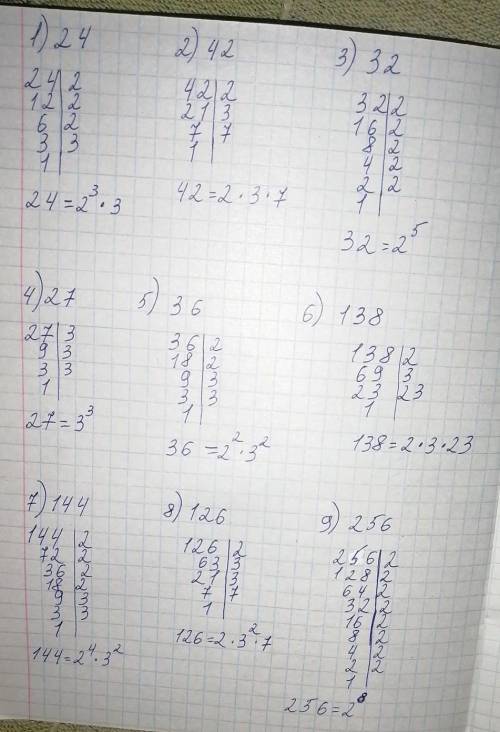 1) 24
24 | 2
12 | 2
6 | 2
3 | 3
1 |
24 = 2³ · 3
2) 42
42 | 2
21 | 3
7 | 7
1 |
42 = 2 · 3 · 7
3) 32
32 | 2
16 | 2
8 | 2
4 | 2
2 | 2
1 |
32 = 2⁵
4) 27
27 | 3
9 | 3
3 | 3
1 |
27 = 3³
5) 36
36 | 2
18 | 2
9 | 3
3 | 3
1 |
36 = 2² · 3²
6) 138
138 | 2
69 | 3
23 | 23
1 |
138 = 2 · 3 · 23
7) 144
144 | 2
72 | 2
36 | 2
18 | 2
9 | 3
3 | 3
1 |
144 = 2⁴ · 3²
8) 126
126 | 2
63 | 3
21 | 3
7 | 7
1 |
126 = 2 · 3² · 7
9) 256
256 | 2
128 | 2
64 | 2
32 | 2
16 | 2
8 | 2
4 | 2
2 | 2
1 |
256 = 2⁸